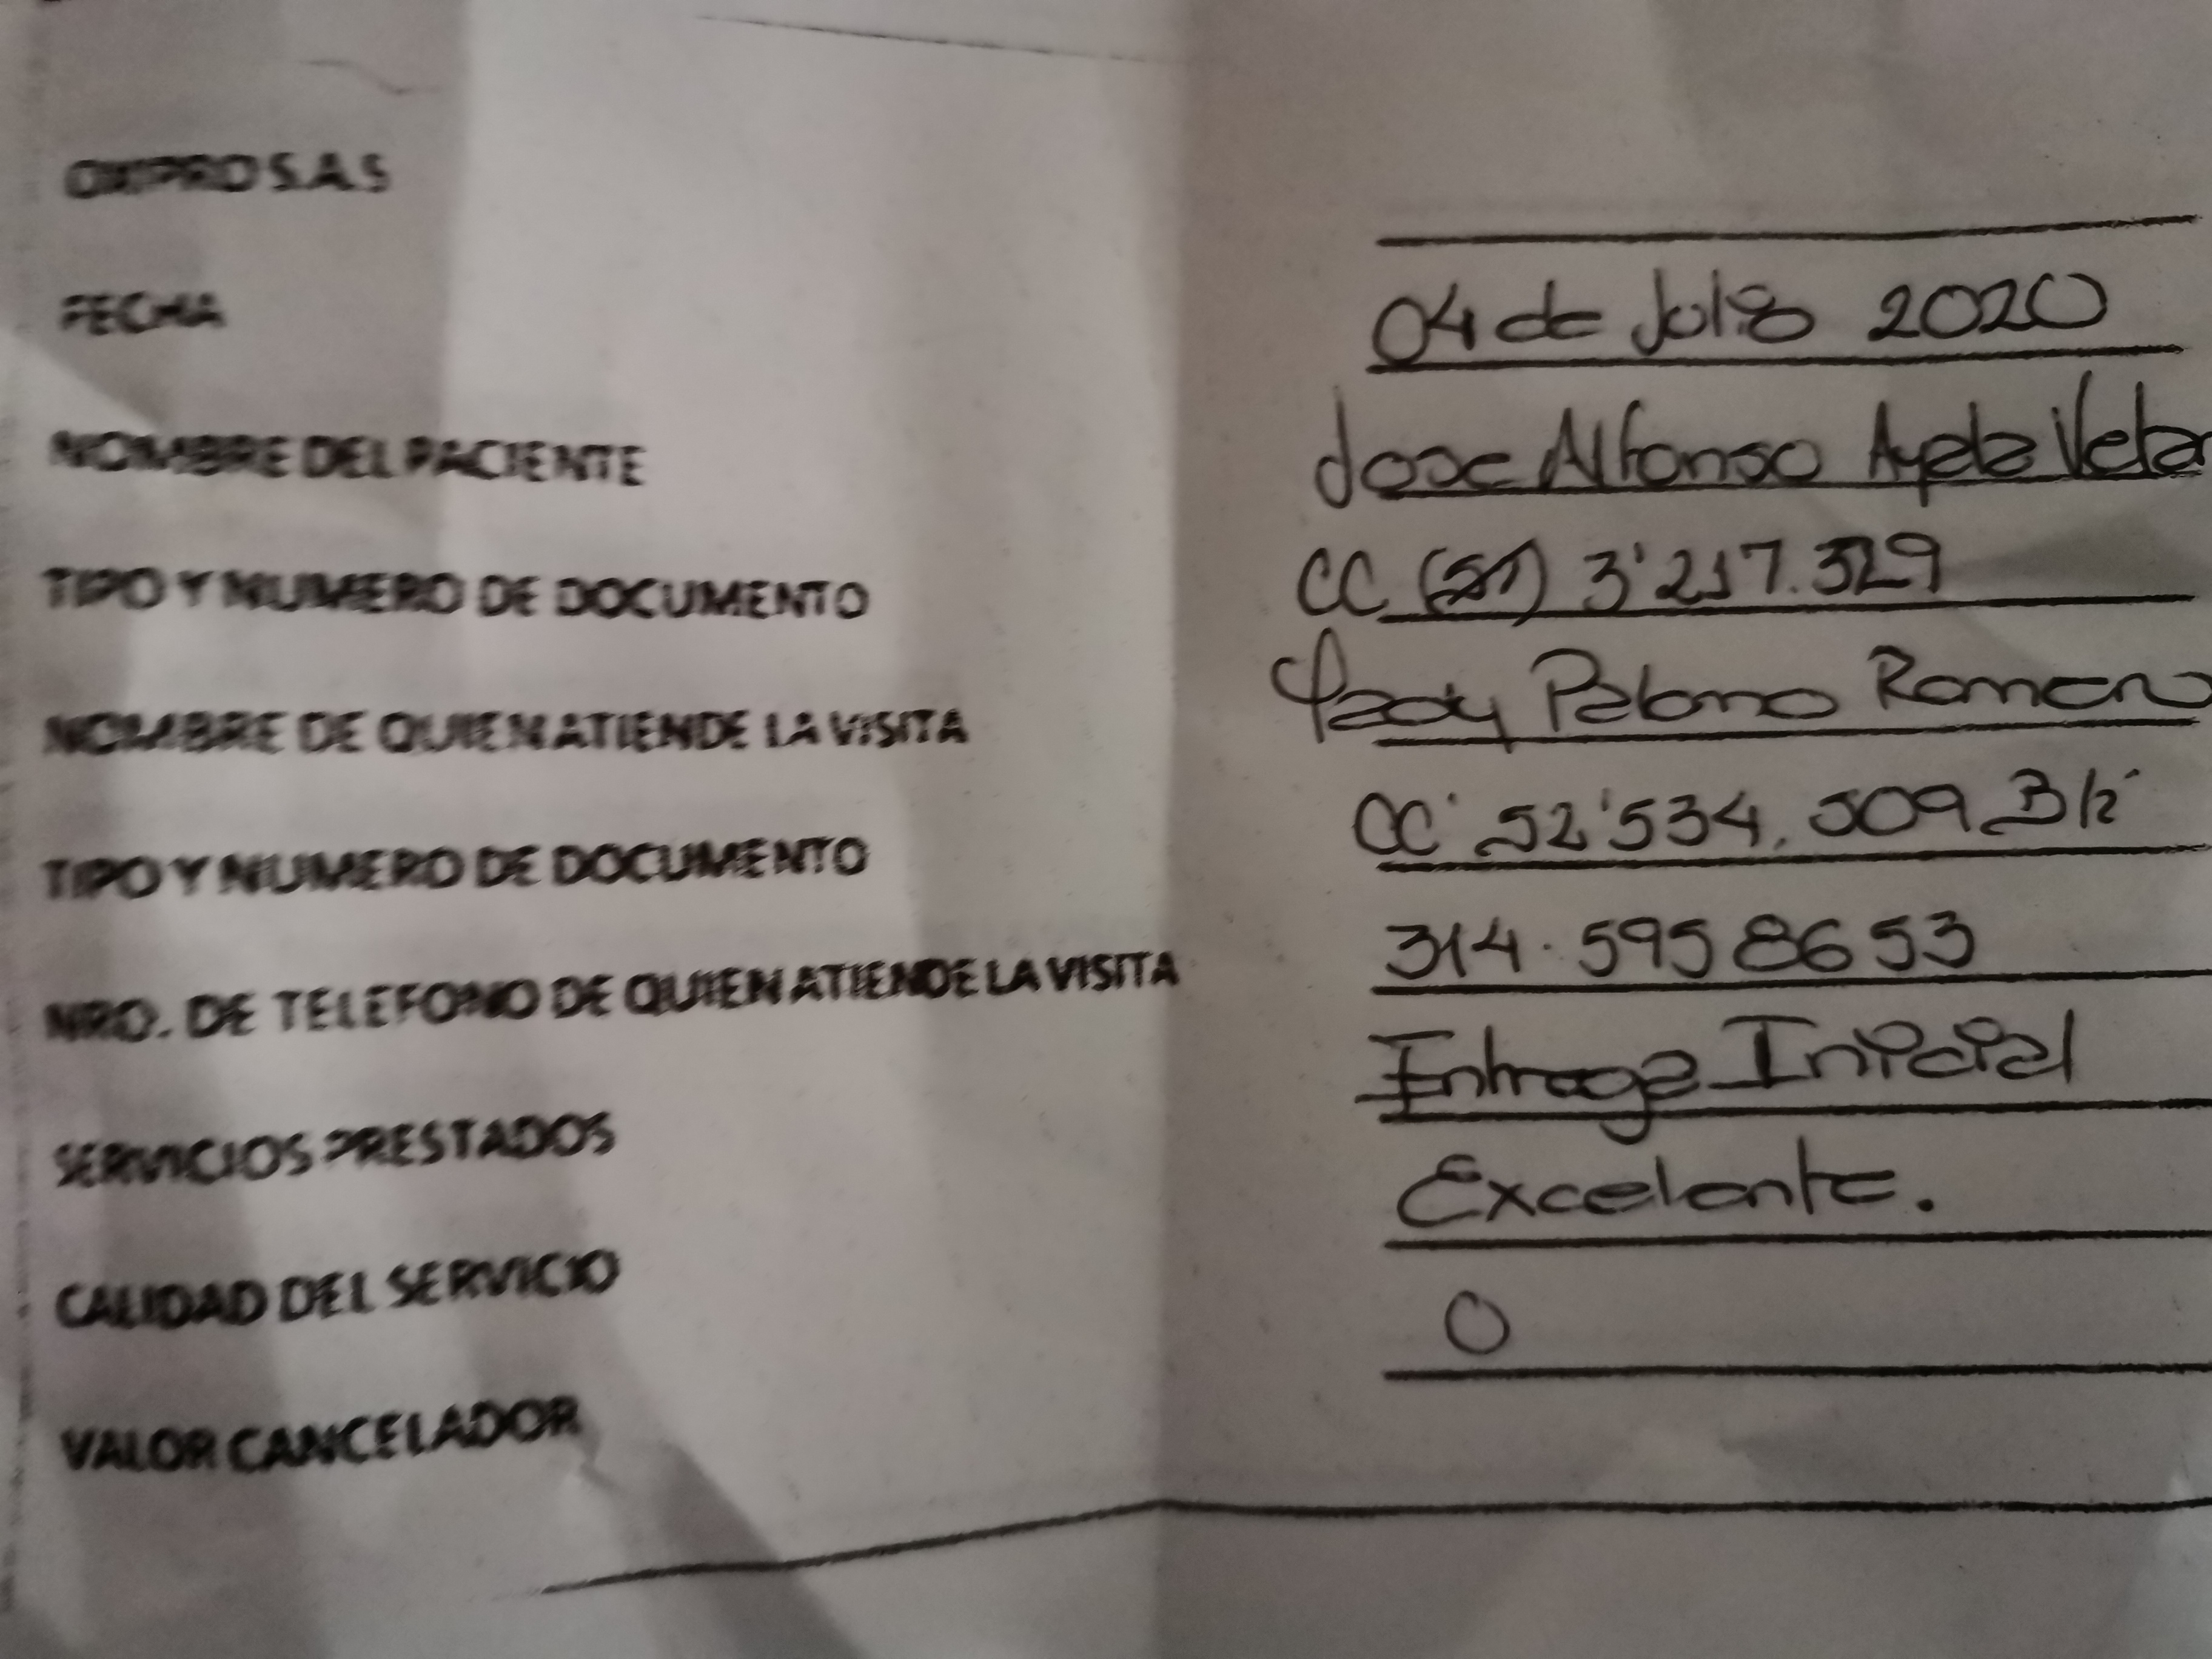 OXIPRO S.A.S
FECHA 04 de Julio 2020
NOMBRE DEL PACIENTE Jose Alfonso Ayala
TIPO Y NUMERO DE DOCUMENTO CC 3'217.329
NOMBRE DE QUIEN ATIENDE LA VISITA Palomo Romero
TIPO Y NUMERO DE DOCUMENTO CC 52'534.509
NRO. DE TELEFONO DE QUIEN ATIENDE LA VISITA 314.5958653
SERVICIOS PRESTADOS Entrega Inicial
CALIDAD DEL SERVICIO Excelente.
VALOR CANCELADOR 0